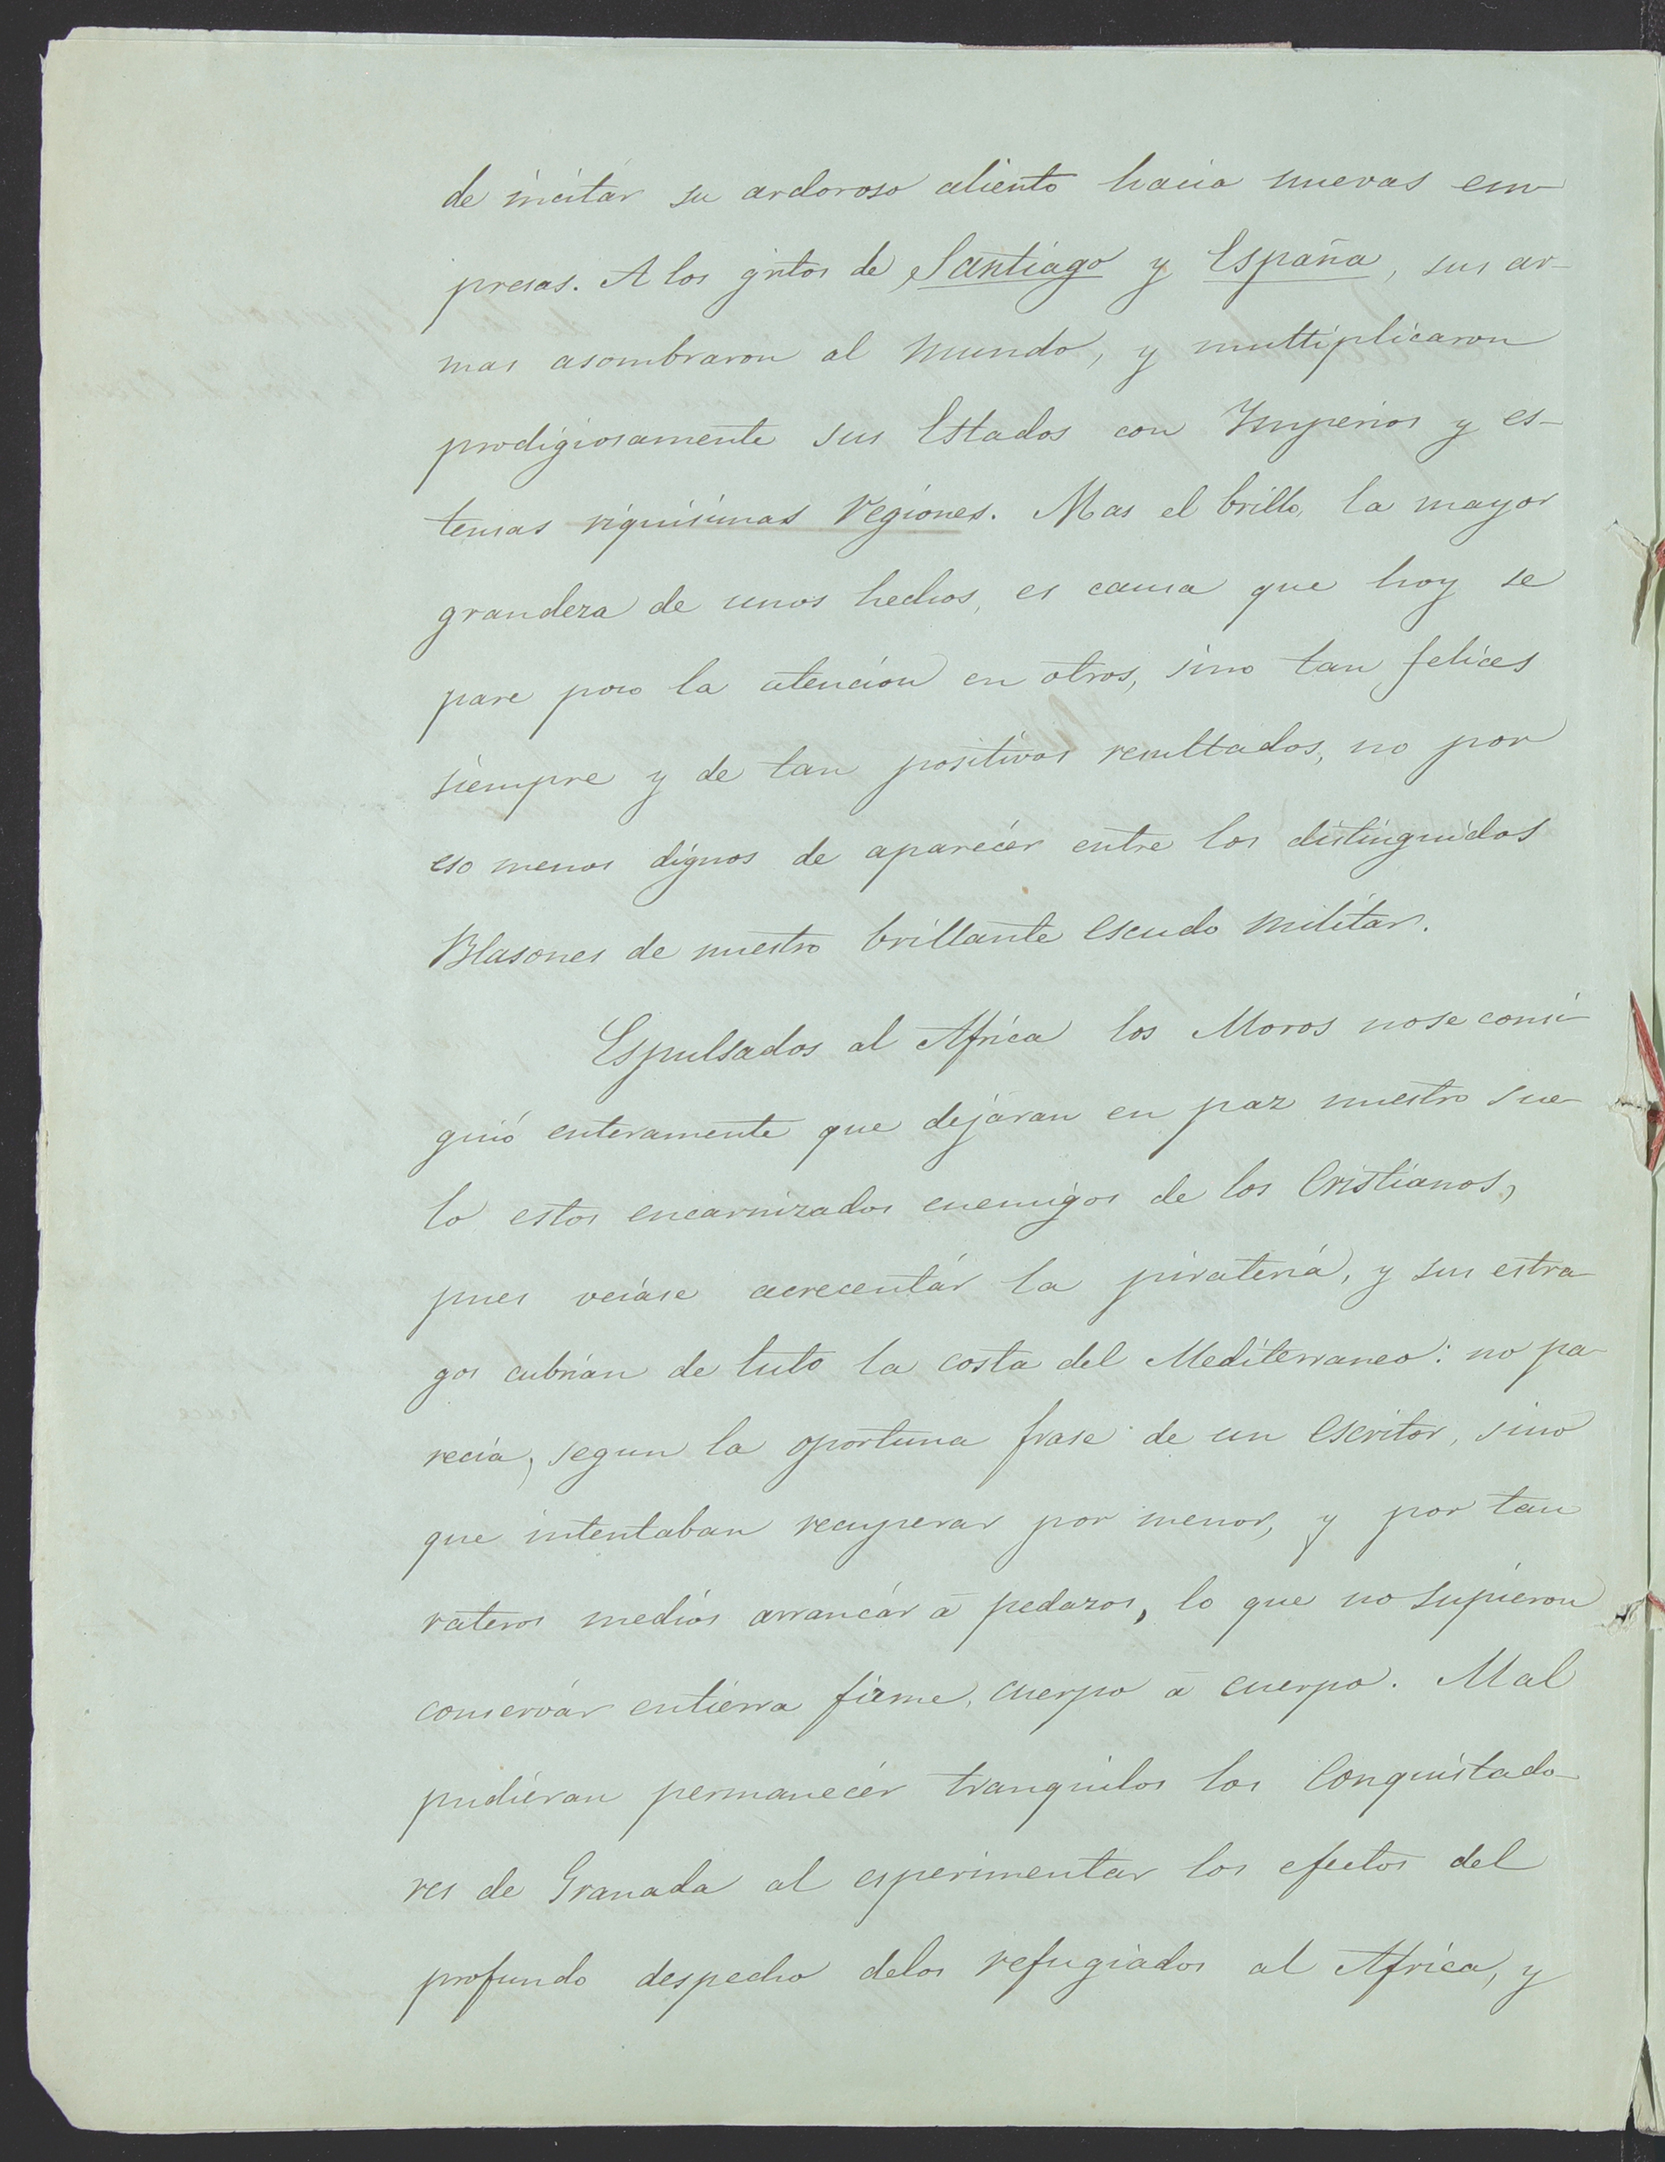 de incitár su ardoroso aliento hacia nuevas em-
presas. A los gritos de Santiago y España, sus ar-
mas asombraron al mundo, y multiplicaron
prodigiosamente sus Estados con Imperios y es-
tensas riquisimas regiones. Mas el brillo, la mayor
grandeza de unos hechos, es causa que hoy se
pare poco la atencion en otros, sino tan felices
siempre y de tan positivos resultados, no por
eso menos dignos de aparecér entre los distinguidos
Blasones de nuestro brillante escudo militar.
Espulsados al Africa los Moros no se consi-
guió enteramente que dejáran en paz nuestro sue-
lo estos encarnizados enemigos de los Cristianos,
pues veíase acrecentár la piratería, y sus estra-
gos cubrían de luto la costa del Mediterraneo: no pa-
recía, segun la oportuna frase de un escritor, sino
que intentaban recuperar por menor, y por tan
rateros medios arrancár á pedazos, lo que no supieron
conservár en tierra firme, cuerpo á cuerpo. Mal
pudieran permanecér tranquilos los Conquistado-
res de Granada al esperimentar los efectos del
profundo despecho delos refugiados al Africa, y